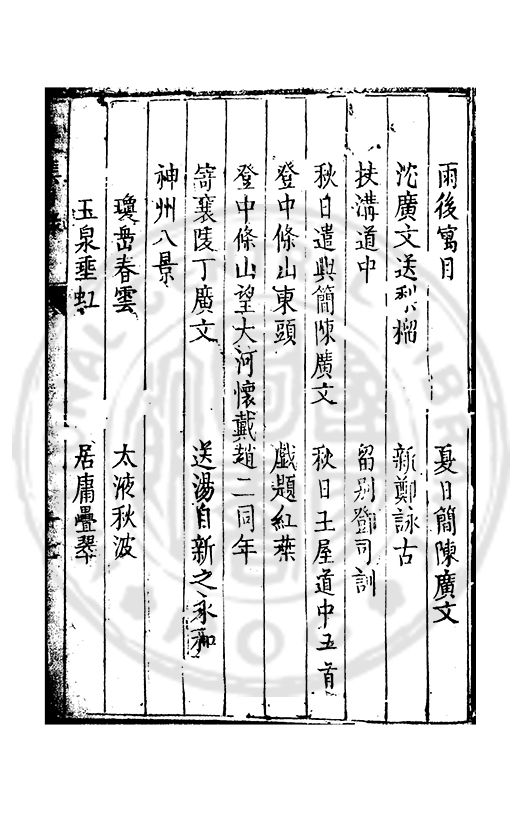 雨後寓目 夏日簡陳廣文
沈廣文送梨榴 新鄭詠古
扶溝道中 留別鄧司訓
秋日遣興簡陳廣文 秋日王屋道中五首
登中條山東頭 戲題紅葉
登中條山望大河懷戴趙二同年
寄襄陵丁廣文 送湯自新之永和
神州八景
瓊島春雲 太液秋波
玉泉垂虹 居庸疊翠